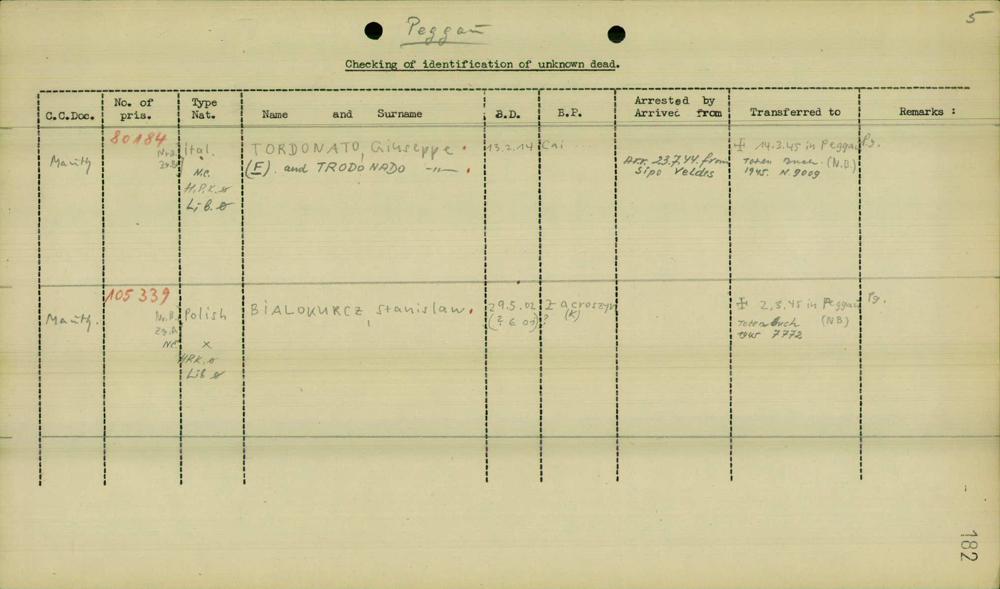 5
Peggau
Checking of identification of unknown dead.
C.C.Doc. No. of pris. Type Nat. Name and Surname B.D. B.P. Arrested by Arrived from Transferred to Remarks :
80184
Mauth Ital. TORDONATO, Giuseppe. 13.2.14 Cai 14.3.45 in Peggau Pg.
N.C. (E). and TRODONADO -"- . Arr. 23.7.44 from Toten buch. (N.B.)
H.P.K. Sipo Veldes 1945. N. 9009
Lib.
105 339
Mauth. Polish BIALOKURCZ, Stanislaw. 29.5.02 2.3.45 in Peggau Pg.
Nr.B. (K) (NB)
NC x Totenbuch
HRK. 1945 7772
Lib
182